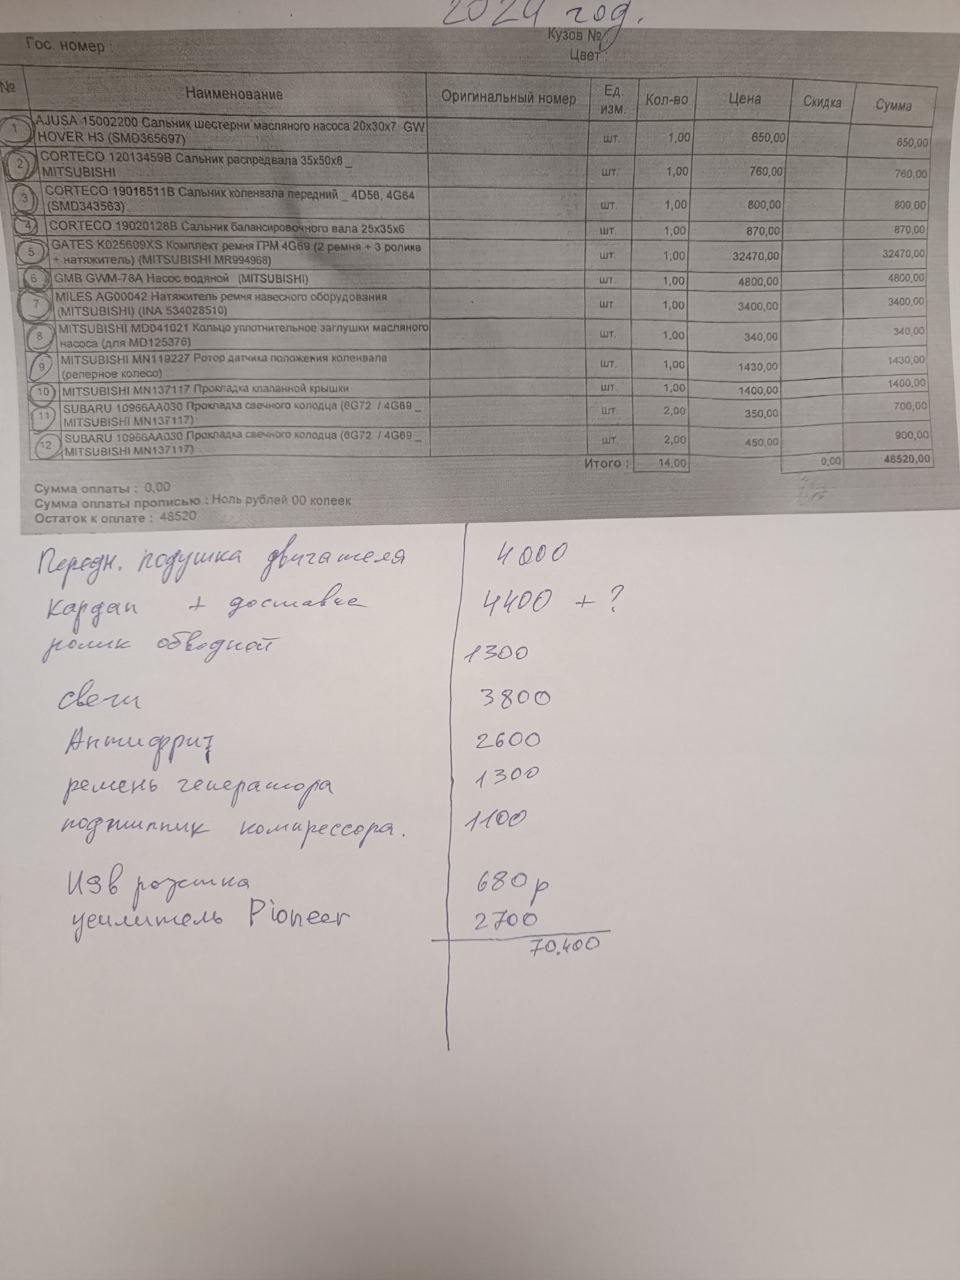 2024 год.
Гос. номер :
Кузов №
Цвет :
№ Наименование Оригинальный номер Ед. изм. Кол-во Цена Скидка Сумма
1 AJUSA 15002200 Сальник шестерни масляного насоса 20x30x7 GW
HOVER H3 (SMD365697) шт. 1,00 650,00 650,00
2 CORTECO 12013459B Сальник распредвала 35x50x8 _
MITSUBISHI шт. 1,00 760,00 760,00
3 CORTECO 19016511B Сальник коленвала передний _ 4D56, 4G64
(SMD343563) шт. 1,00 800,00 800,00
4 CORTECO 19020128B Сальник балансировочного вала 25x35x6 шт. 1,00 870,00 870,00
5 GATES K025609XS Комплект ремня ГРМ 4G69 (2 ремня + 3 ролика
+ натяжитель) (MITSUBISHI MR994968) шт. 1,00 32470,00 32470,00
6 GMB GWM-78A Насос водяной (MITSUBISHI) шт. 1,00 4800,00 4800,00
7 MILES AG00042 Натяжитель ремня навесного оборудования
(MITSUBISHI) (INA 534028510) шт. 1,00 3400,00 3400,00
8 MITSUBISHI MD041021 Кольцо уплотнительное заглушки масляного
насоса (для MD125376) шт. 1,00 340,00 340,00
9 MITSUBISHI MN119227 Ротор датчика положения коленвала
(реперное колесо) шт. 1,00 1430,00 1430,00
10 MITSUBISHI MN137117 Прокладка клапанной крышки шт. 1,00 1400,00 1400,00
11 SUBARU 10966AA030 Прокладка свечного колодца (6G72 / 4G69 _
MITSUBISHI MN137117) шт. 2,00 350,00 700,00
12 SUBARU 10966AA030 Прокладка свечного колодца (6G72 / 4G69 _
MITSUBISHI MN137117) шт. 2,00 450,00 900,00
Итого : 14,00 0,00 48520,00
Сумма оплаты : 0,00
Сумма оплаты прописью : Ноль рублей 00 копеек
Остаток к оплате : 48520
Передн. подушка двигателя 4000
Кардан + доставка 4400 + ?
ролик обводной 1300
свечи 3800
Антифриз 2600
ремень генератора 1300
подшипник компрессора. 1100
USB розетка 680р
усилитель Pioneer 2700
70.400